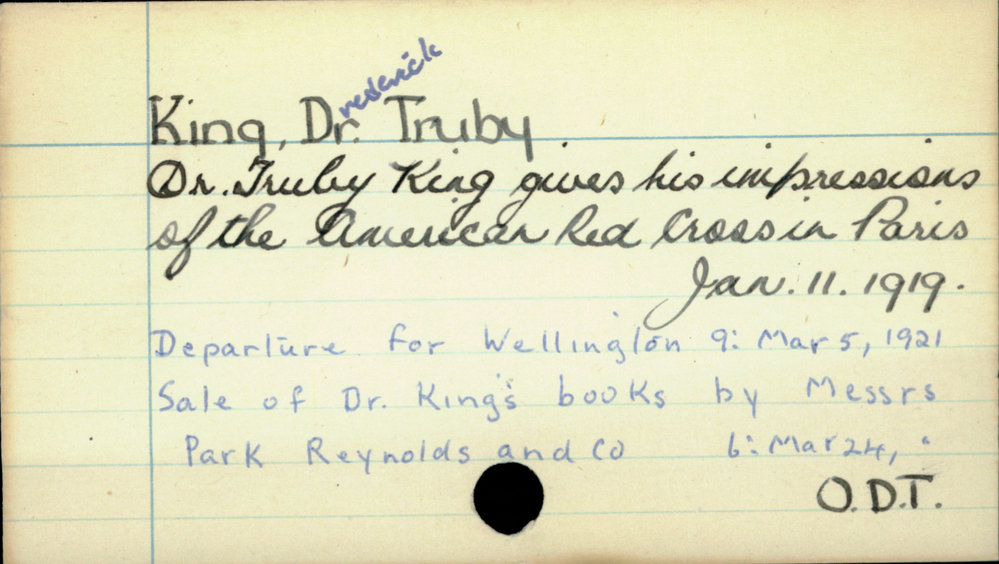 rederick
King, Dr. Truby
Dr. Truby King gives his impressions
of the American Red Cross in Paris
Jan. 11. 1919.
Departure for Wellington 9: Mar 5, 1921
Sale of Dr. King's books by Messrs
Park Reynolds and Co 6: Mar 24, "
O.D.T.